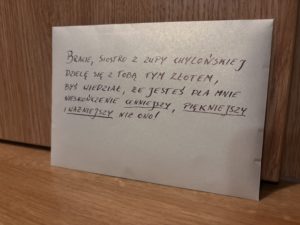 BRACIE, SIOSTRO Z ZUPY CHYLOŃSKIEJ
DZIELĘ SIĘ Z TOBĄ TYM ZŁOTEM,
BYŚ WIEDZIAŁ, ŻE JESTEŚ DLA MNIE
NIESKOŃCZENIE CENNIEJSZY, PIĘKNIEJSZY
I WAŻNIEJSZY NIŻ ONO!